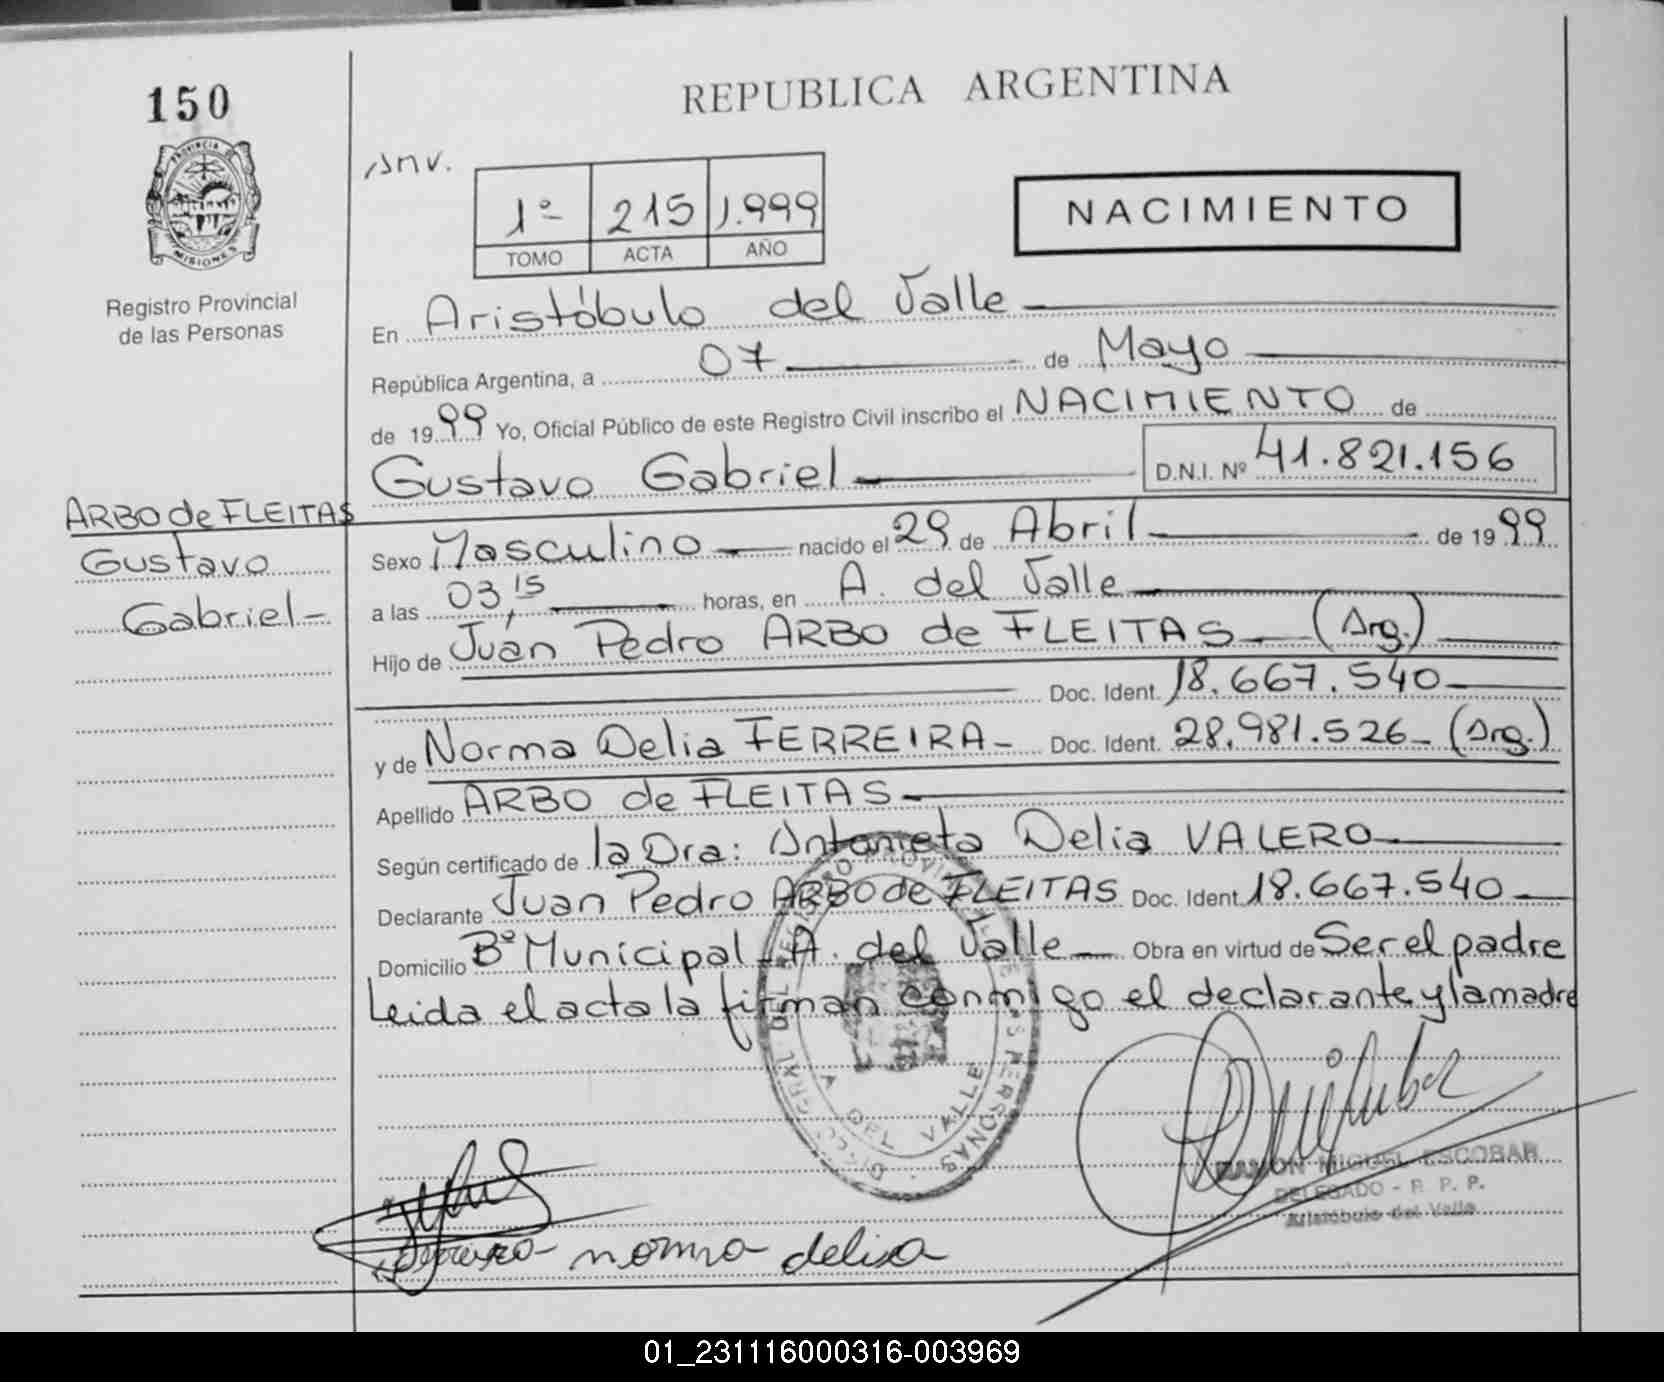 150
REPUBLICA ARGENTINA
PROVINCIA DE
MISIONES
Registro Provincial
de las Personas
inv.
1º 215 1.999
TOMO ACTA AÑO
NACIMIENTO
En Aristóbulo del Valle
República Argentina, a 07 de Mayo
de 1999 Yo, Oficial Público de este Registro Civil inscribo el NACIMIENTO de
Gustavo Gabriel D.N.I. Nº 41.821.156
ARBO de FLEITAS
Gustavo
Gabriel-
Sexo Masculino nacido el 29 de Abril de 1999
a las 03,15 horas, en A. del Valle
Hijo de Juan Pedro ARBO de FLEITAS (Arg.)
Doc. Ident. 18.667.540
y de Norma Delia FERREIRA- Doc. Ident. 28.981.526- (Arg.)
Apellido ARBO de FLEITAS
Según certificado de la Dra: Antonieta Delia VALERO
Declarante Juan Pedro ARBO de FLEITAS Doc. Ident. 18.667.540
Domicilio Bº Municipal - A. del Valle Obra en virtud de Ser el padre
Leida el acta la firman conmigo el declarante y la madre
A. DEL VALLE
RAMON MIGUEL ESCOBAR
DELEGADO - R. P. P.
Aristóbulo del Valle
norma delia
01_231116000316-003969